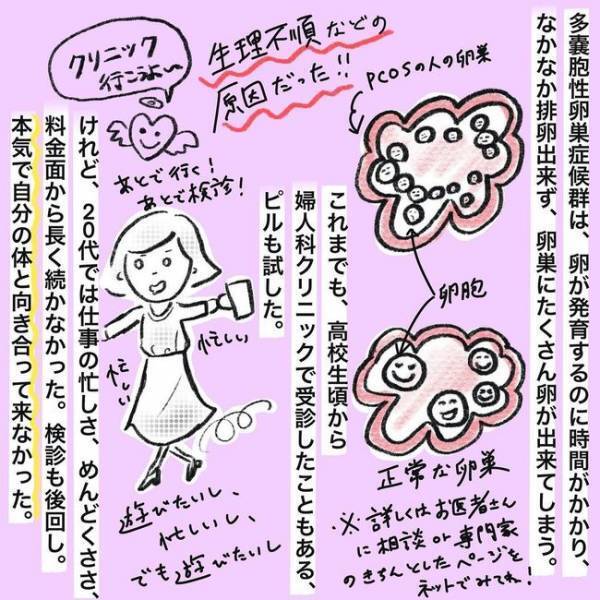 多嚢胞性卵巣症候群は、卵が発育するのに時間がかかり、
なかなか排卵出来ず、卵巣にたくさん卵が出来てしまう。
PCOSの人の卵巣
生理不順などの
原因だった!!
卵胞
正常な卵巣
※詳しくはお医者さん
に相談or専門家
のきちんとしたページを
ネットでみてね!
これまでも、高校生頃から
婦人科クリニックで受診したこともある、
ピルも試した。
クリニック
行こうよぃ〜
あとで行く!
あとで検診!
忙しい
忙しい
遊びたいし、
忙しいし、
でも遊びたいし
けれど、20代では仕事の忙しさ、めんどくささ、
料金面から長く続かなかった。検診も後回し。
本気で自分の体と向き合って来なかった。